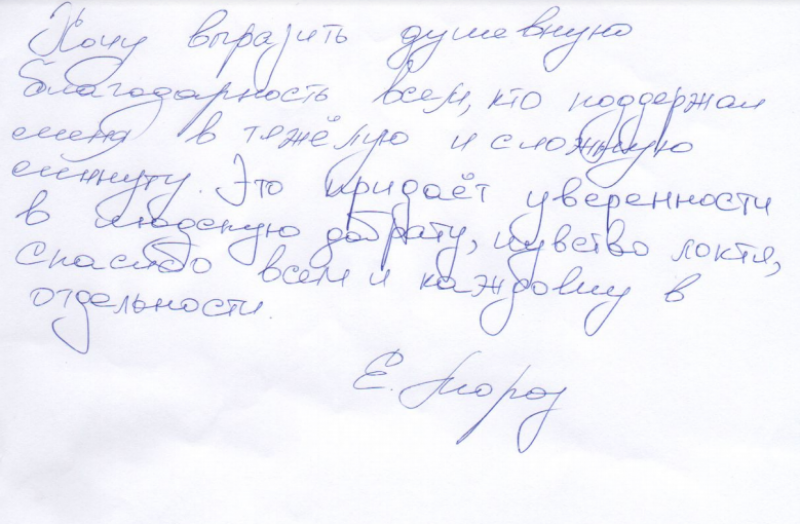 Хочу выразить душевную
благодарность всем, кто поддержал
меня в тяжёлую и сложную
минуту. Это придаёт уверенности
в людскую доброту, чувство локтя,
Спасибо всем и каждому в
отдельности.
Е. Мороз